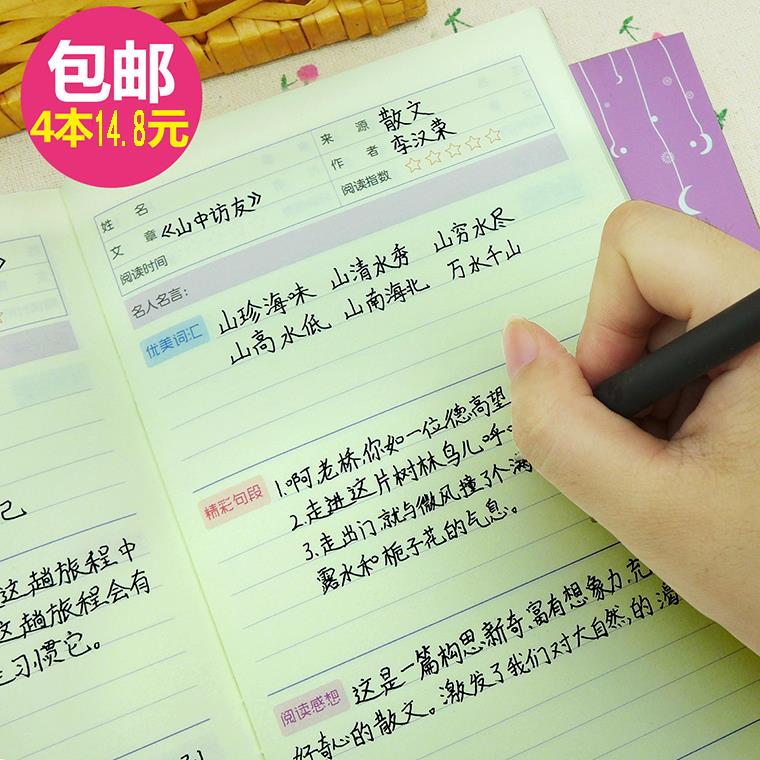 包邮
4本14.8元
姓 名
来 源 散文
文 章 《山中访友》
作 者 李汉荣
阅读时间
阅读指数 ☆☆☆☆☆
名人名言:
优美词汇
山珍海味 山清水秀 山穷水尽
山高水低 山南海北 万水千山
精彩句段
1.啊,老桥,你如一位德高望
2.走进这片树林,鸟儿呼
3.走出门,就与微风撞了个满
露水和栀子花的气息。
阅读感想
这是一篇构思新奇,富有想象力,充
好奇心的散文。激发了我们对大自然的渴
己
这趟旅程中
这趟旅程会有
习惯它。